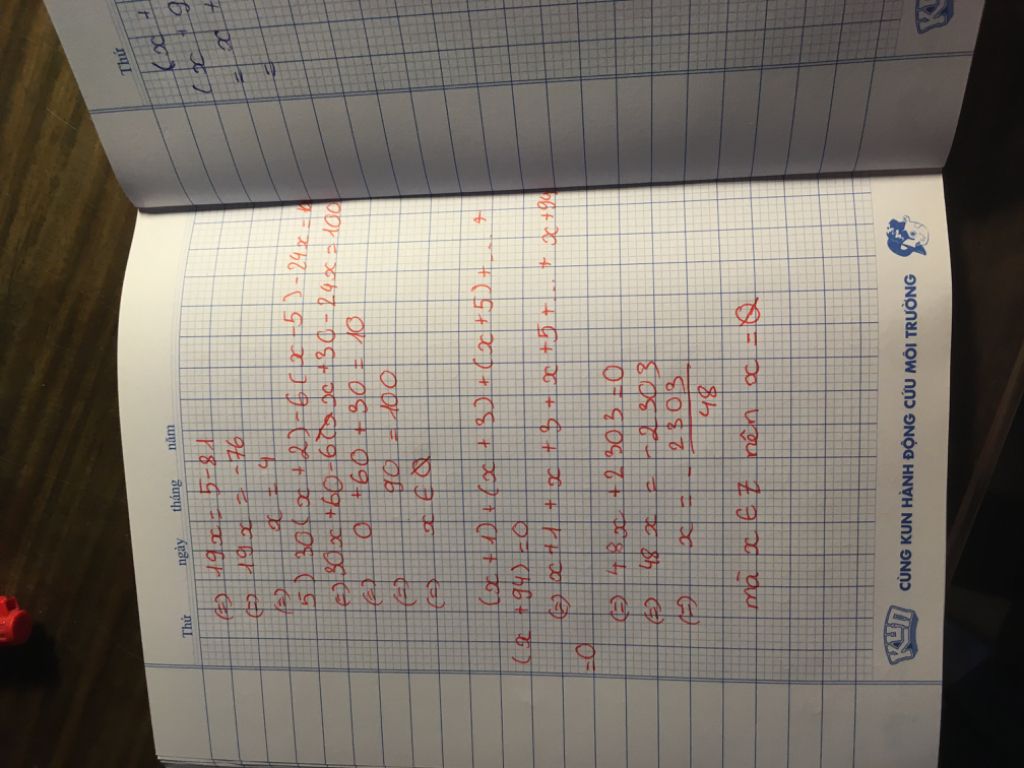 Thứ
(x +
(x + 9
= x +
=
Thứ ngày tháng năm
(=) 19x = 5-81
(=) 19x = -76
(=) x = 4
5) 30(x+2)-6(x-5)-24x =
(=) 30x+60-6x+30-24x=100
(=) 0 +60+30=10
(=) 90 = 100
(=) x ∈ Q
(x+1)+(x+3)+(x+5)+...+
(x+94)=0
(=) x+1+x+3+x+5+...+ x+94
=0
(=) 48x+2303=0
(=) 48x = -2303
(=) x = - 2303
48
mà x ∈ Z nên x = Q
KUN CÙNG KUN HÀNH ĐỘNG CỨU MÔI TRƯỜNG